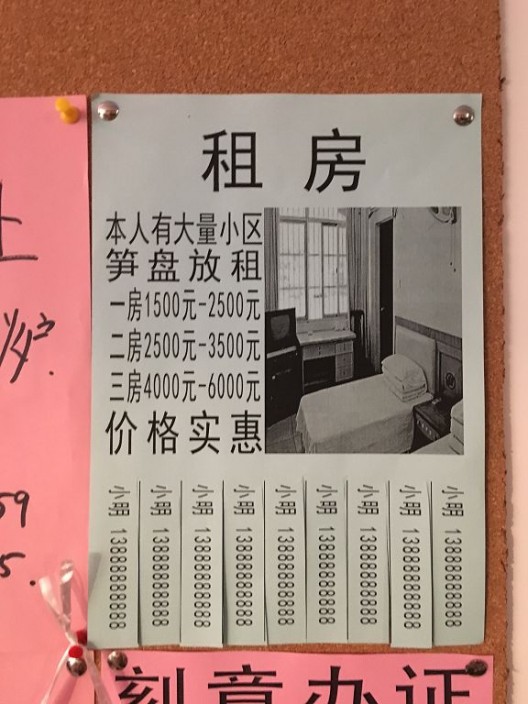 租房
本人有大量小区
笋盘放租
一房1500元-2500元
二房2500元-3500元
三房4000元-6000元
价格实惠
小明 13888888888
小明 13888888888
小明 13888888888
小明 13888888888
小明 13888888888
小明 13888888888
小明 13888888888
小明 13888888888
小明 13888888888
上
炉.
59
5.
刻章办证